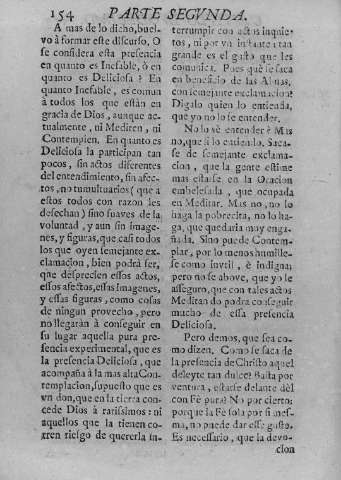 154 PARTE SEGVNDA.
A mas de lo dicho, buel-
vo à formar este discurso. O
se considera esta presencia
en quanto es Inefable, ò en
quanto es Deliciosa? En
quanto Inefable, es comun
à todos los que estàn en
gracia de Dios, aunque ac-
tualmente, ni Mediten, ni
Contemplen. En quanto es
Deliciosa la participan tan
pocos, sin actos diferentes
del entendimiento, sin afec-
tos, no tumultuarios (que a
estos todos con razon les
desechan) sino suaves de la
voluntad, y aun sin image-
nes, y figuras, que casi todos
los que oyen semejante ex-
clamacion, bien podrà ser,
que desprecien essos actos,
essos afectos, essas Imagenes,
y essas figuras, como cosas
de ningun provecho, pero
no llegaràn à conseguir en
su lugar aquella pura pre-
sencia experimental, que es
la presencia Deliciosa, que
acompaña à la mas alta Con-
templacion, supuesto que es
vn don, que en la tierra con-
cede Dios à rarissimos: ni
aquellos que la tienen co-
rren riesgo de quererla in-
terrumpir con actos inquie-
tos, ni por vn instante: tan
grande es el gusto que les
comunica. Pues què se saca
en beneficio de las Almas,
con semejante exclamacion?
Digalo quien lo entienda,
que yo no lo se entender.
No lo sè entender? Mas
no, que si lo entiendo. Saca-
se de semejante exclama-
cion, que la gente estime
mas estarse en la Oracion
embelesada, que ocupada
en Meditar. Mas no, no lo
haga la pobrecita, no lo ha-
ga, que quedaria muy enga-
ñada. Sino puede Contem-
plar, por lo menos humille-
se como invtil, è indigna;
pero no se above, que yo le
asseguro, que con tales actos
Meditando podra conseguir
mucho de essa presencia
Deliciosa.
Pero demos, que sea co-
mo dizen, Como se saca de
la presencia de Christo aquel
deleyte tan dulce? Basta por
ventura, estarse delante dèl
con Fè pura? No por cierto;
porque la Fè sola por si mes-
ma, no puede dar esse gusto.
Es necessario, que la devo-
cion